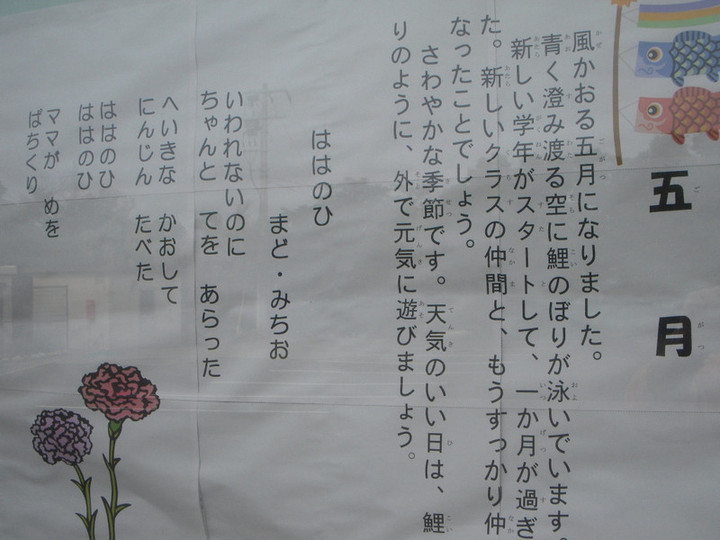 五月
風かおる五月になりました。
青く澄み渡る空に鯉のぼりが泳いでいます。
新しい学年がスタートして、一か月が過ぎ
た。新しいクラスの仲間と、もうすっかり仲
なったことでしょう。
さわやかな季節です。天気のいい日は、鯉
りのように、外で元気に遊びましょう。
ははのひ
まど・みちお
いわれないのに
ちゃんと てを あらった
へいきな かおして
にんじん たべた
ははのひ
ははのひ
ママが めを
ぱちくり